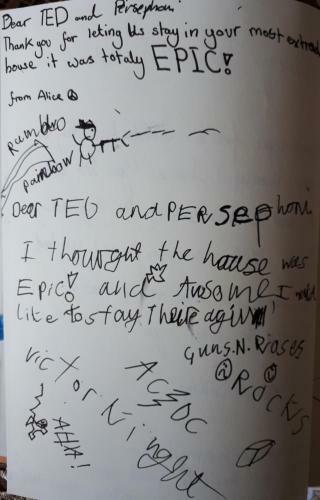 Dear TED and Persephoni
Thankyou for leting Us stay in your most extrod
house it was totaly EPIC!
from Alice
Rambo
Rainbow
Dear TED and PERsephoni
I thourght the house was
Epic! and Awsome I would
like to stay There agin!
Guns.N.Roses
Rocks
AC DC
AHA!